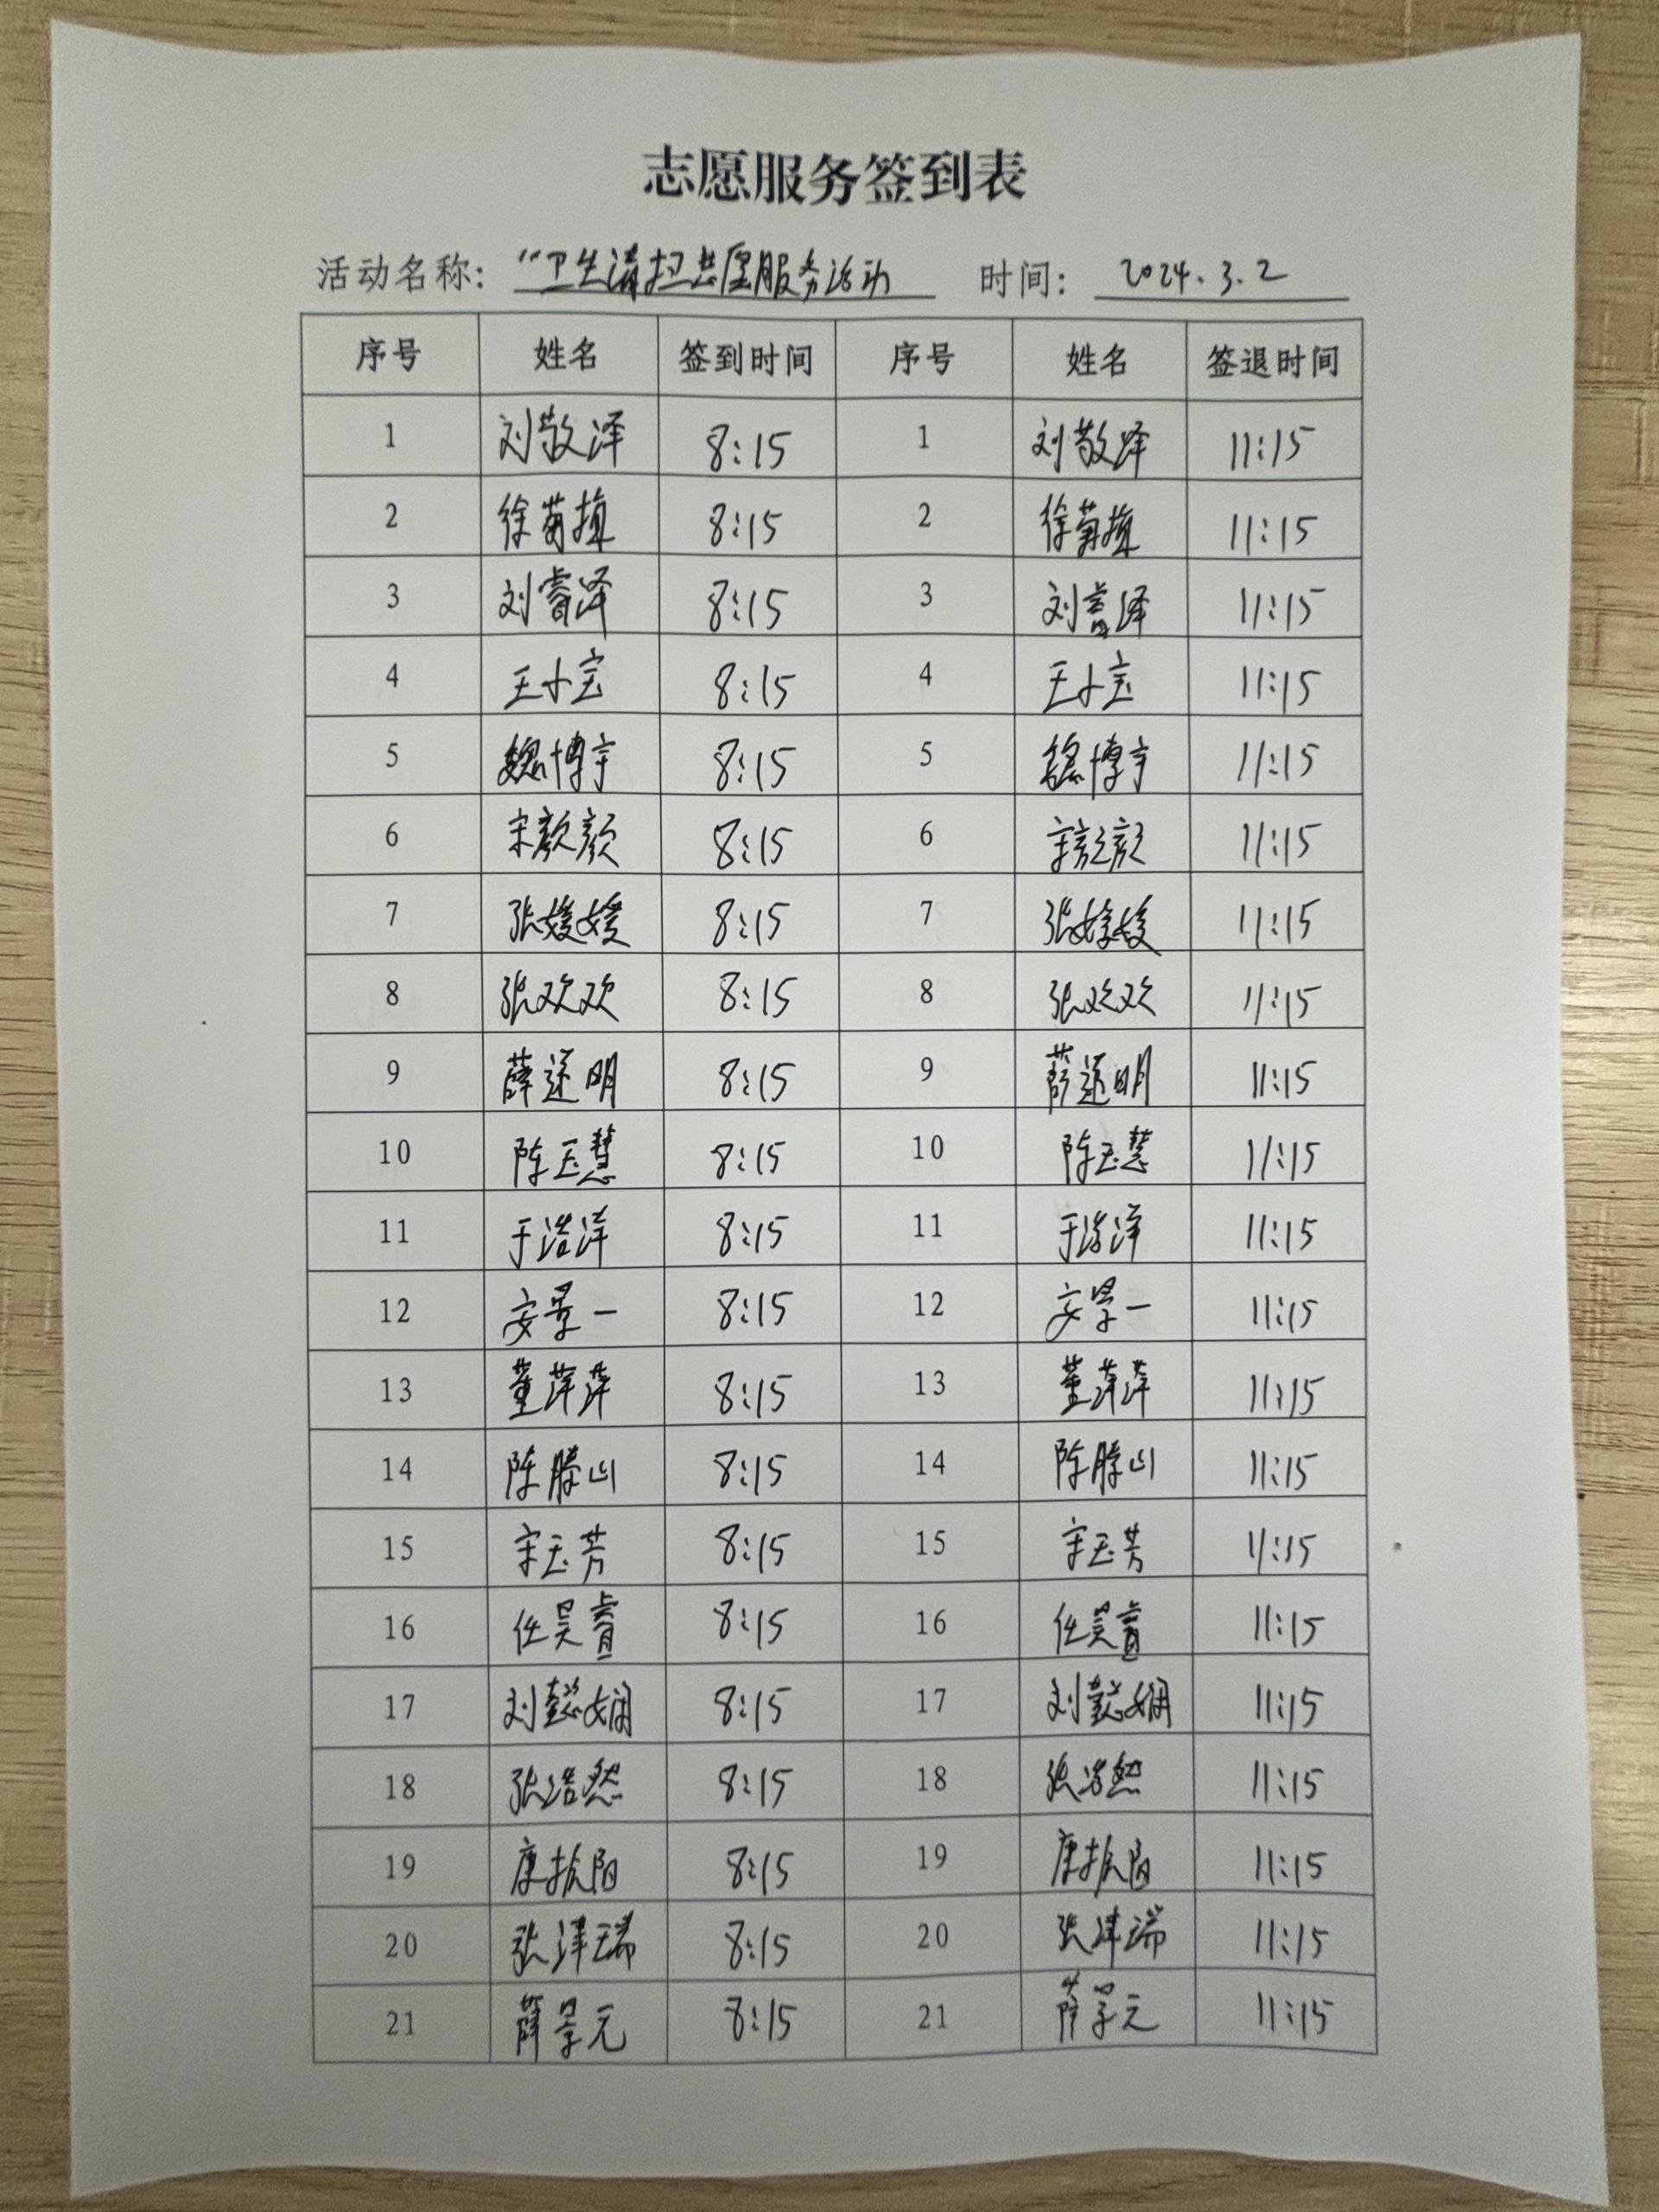 志愿服务签到表
活动名称：“卫生清扫志愿服务活动 时间：2024.3.2
序号 姓名 签到时间 序号 姓名 签退时间
1 刘敬泽 8:15 1 刘敬泽 11:15
2 徐菊 8:15 2 徐菊 11:15
3 刘睿泽 8:15 3 刘睿泽 11:15
4 王小宝 8:15 4 王小宝 11:15
5 魏博宇 8:15 5 魏博宇 11:15
6 宋颜颜 8:15 6 宋颜颜 11:15
7 张媛媛 8:15 7 张媛媛 11:15
8 张欢欢 8:15 8 张欢欢 11:15
9 薛运明 8:15 9 薛运明 11:15
10 陈玉慧 8:15 10 陈玉慧 11:15
11 于浩洋 8:15 11 于浩洋 11:15
12 安景一 8:15 12 安景一 11:15
13 董萍萍 8:15 13 董萍萍 11:15
14 陈腾山 8:15 14 陈腾山 11:15
15 宋玉芳 8:15 15 宋玉芳 11:15
16 任昊睿 8:15 16 任昊睿 11:15
17 刘懿娴 8:15 17 刘懿娴 11:15
18 张浩然 8:15 18 张浩然 11:15
19 康振阳 8:15 19 康振阳 11:15
20 张津瑞 8:15 20 张津瑞 11:15
21 薛景元 8:15 21 薛景元 11:15